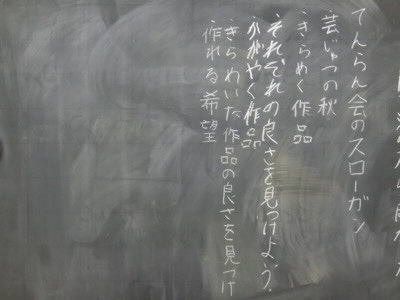 てんらん会のスローガン
芸じゅつの秋
きらめく作品
それぞれの良さを見つけよう。
かがやく作品
きらめいた作品の良さを見つけ
作れる希望